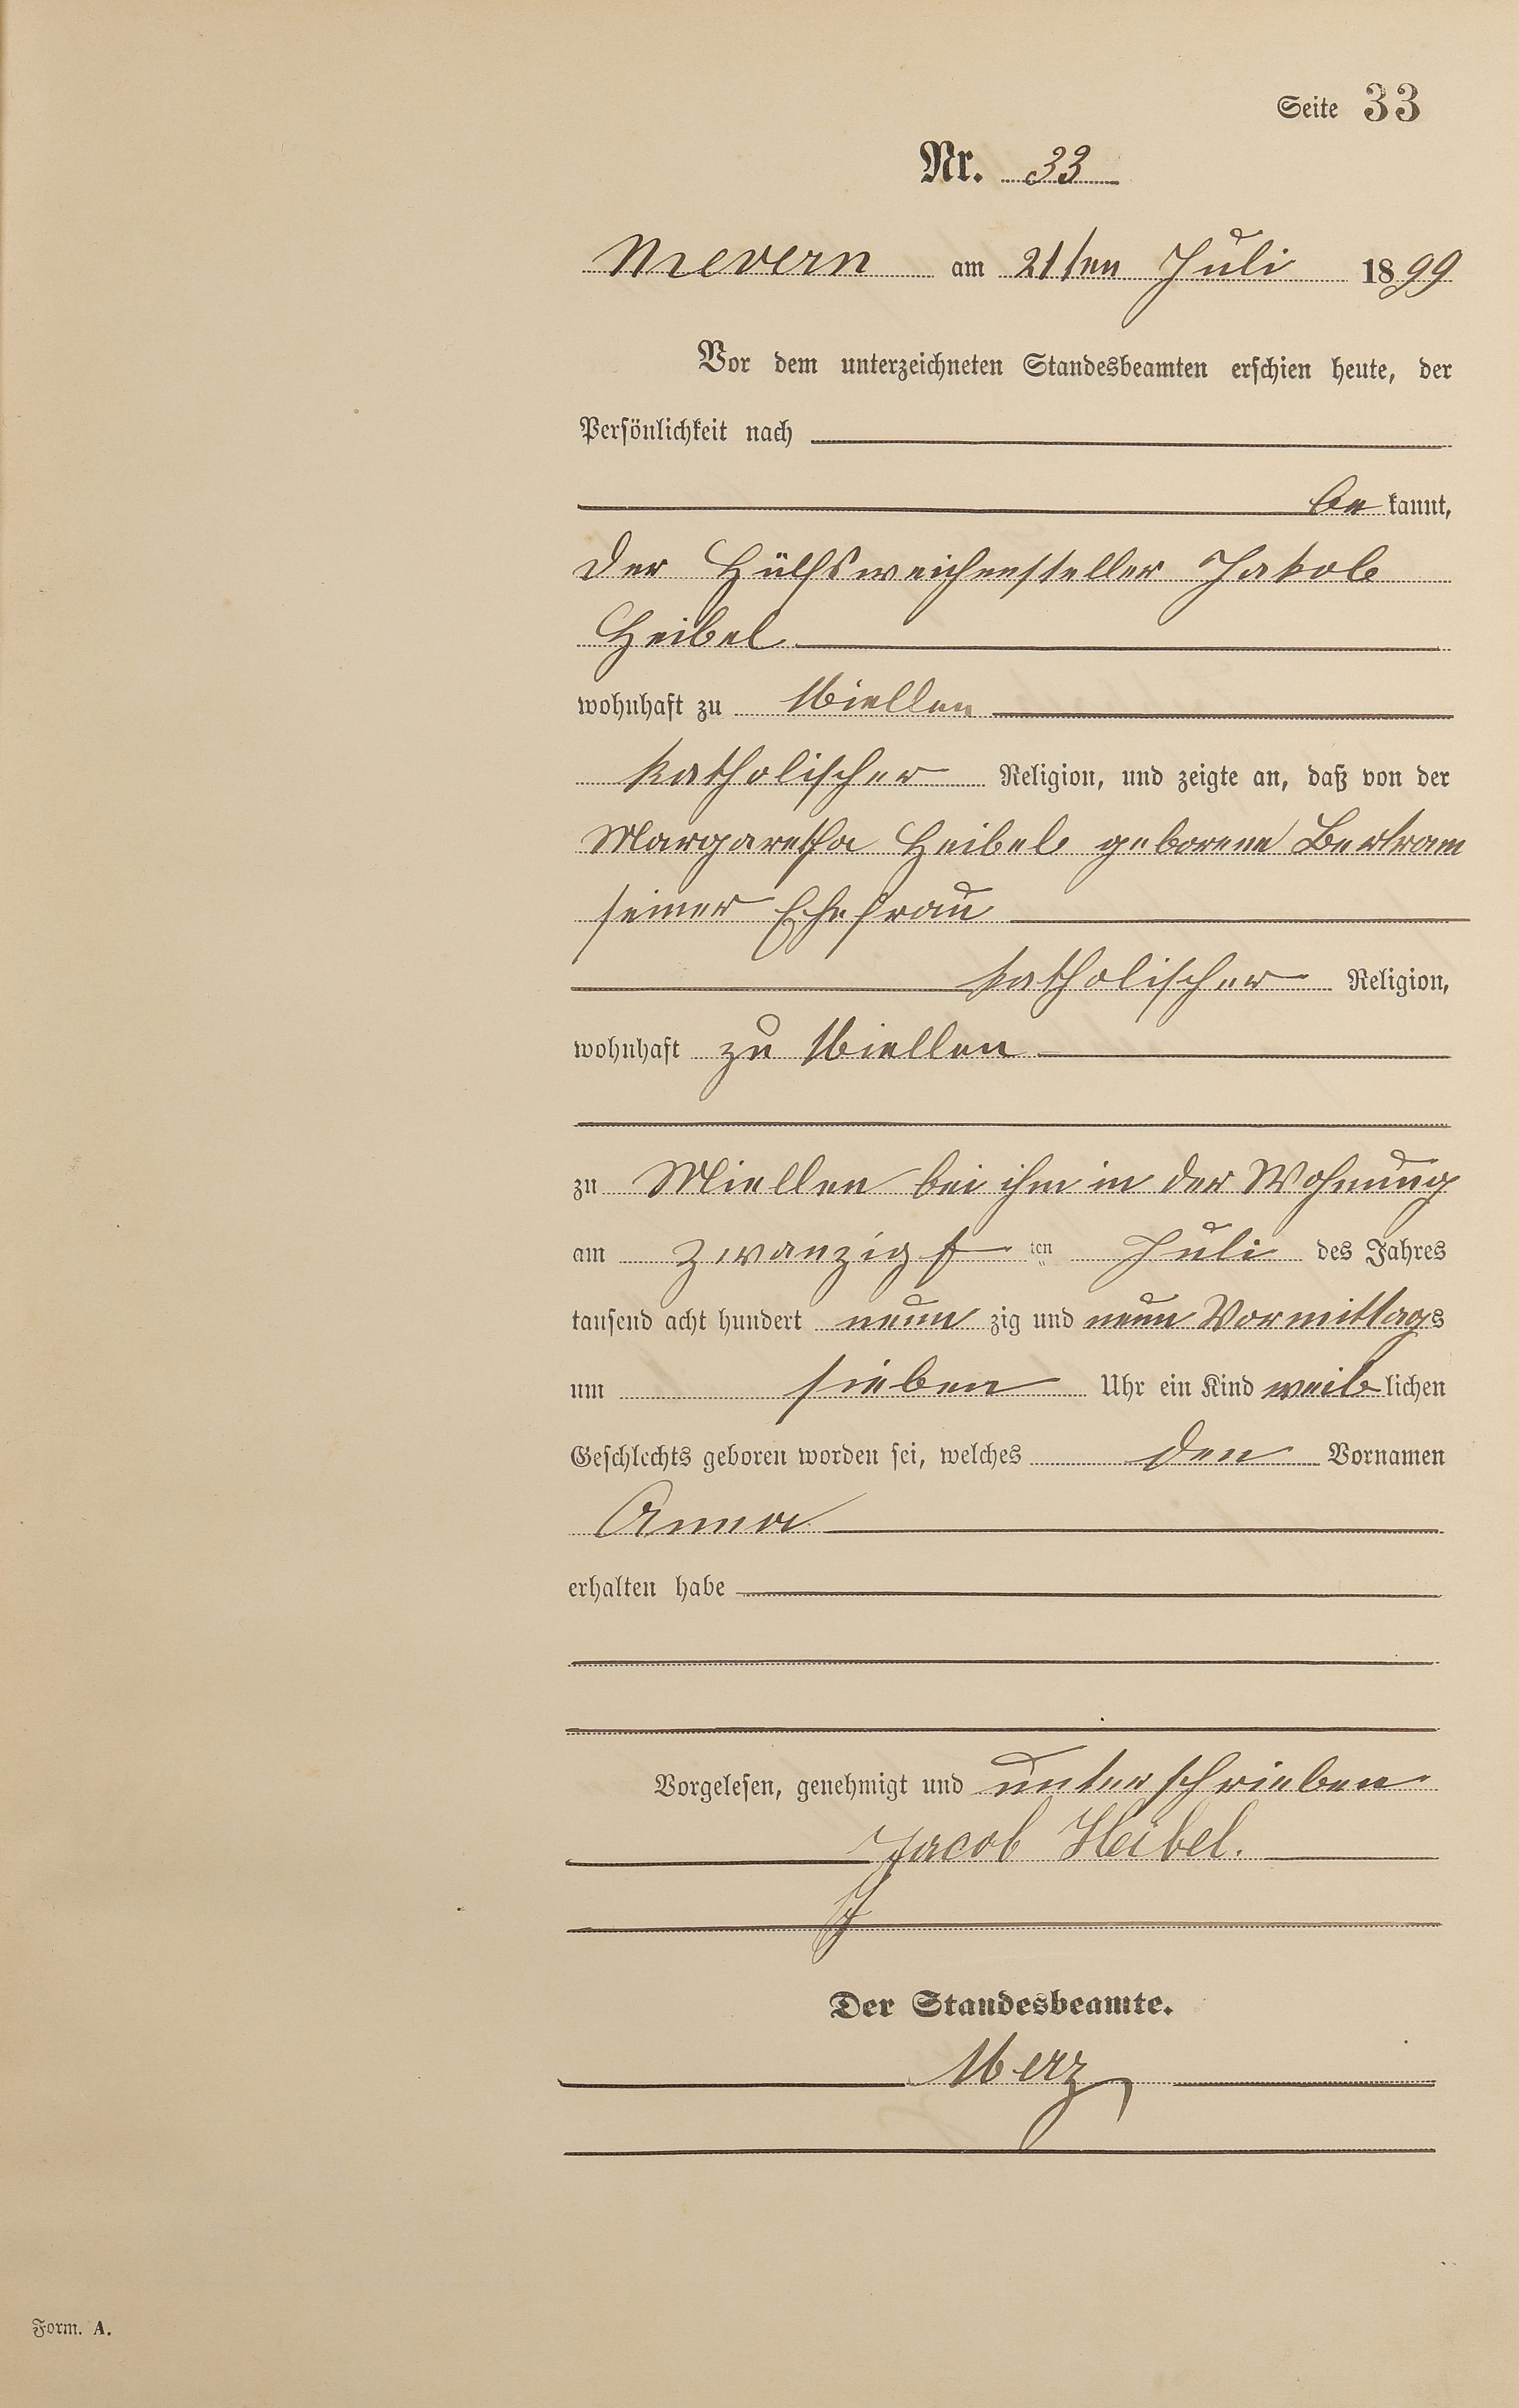 Seite 33
Nr. 33
Nievern am 21ten Juli 1899
Vor dem unterzeichneten Standesbeamten erschien heute, der
Persönlichkeit nach
bekannt,
der Hülfsweichensteller Jakob
Heibel
wohnhaft zu Miellen
katholischer Religion, und zeigte an, daß von der
Margaretha Heibel geborene Bertram
seiner Ehefrau
katholischer Religion,
wohnhaft zu Miellen
zu Miellen bei ihm in der Wohnung
am zwanzigsten Juli des Jahres
tausend acht hundert neunzig und neun Vormittags
um sieben Uhr ein Kind weiblichen
Geschlechts geboren worden sei, welches den Vornamen
Anna
erhalten habe
Vorgelesen, genehmigt und unterschrieben
Jacob Heibel.
Der Standesbeamte.
Merz
Form. A.